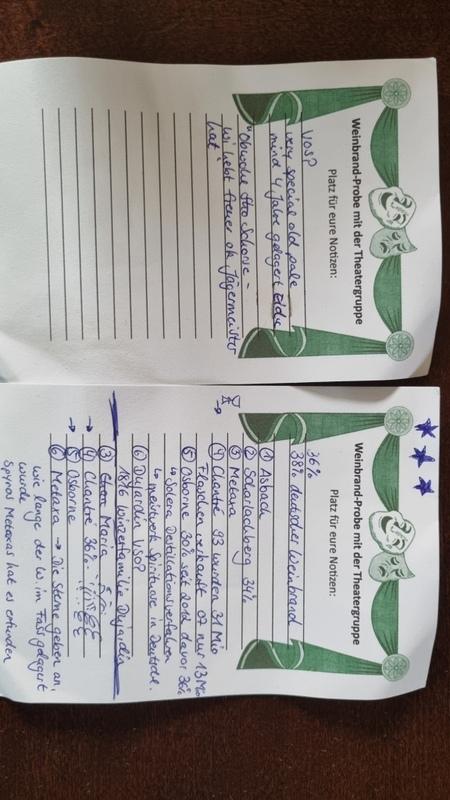 Weinbrand-Probe mit der Theatergruppe
Platz für eure Notizen:
VOSP
very special old pale
mind 4 Jahr gelagert
"Obwohl Otto Schorse -
liebt ok Jägermeister
hat"
Weinbrand-Probe mit der Theatergruppe
Platz für eure Notizen:
36%
38% deutscher Weinbrand
① Asbach
② Scharlachberg 34%
③ Melana
④ Chantré 93 wurden 31 Mio
Flaschen verkauft 07 nur 13 Mio
⑤ Osborne 30% seit 2012 davor 36%
↳ Solera Destillationsverfahren
↳ meistverk Spirituose in Deutschl.
⑥ Dujardin VSOP
1816 Winzerfamilie Dujardin
③ Maria
④ Chantré 36%
⑤ Osborne
⑥ Metaxa → Die Sterne geben an,
wie lange der W. im Fass gelagert
wurde
Spyros Metaxas hat es erfunden